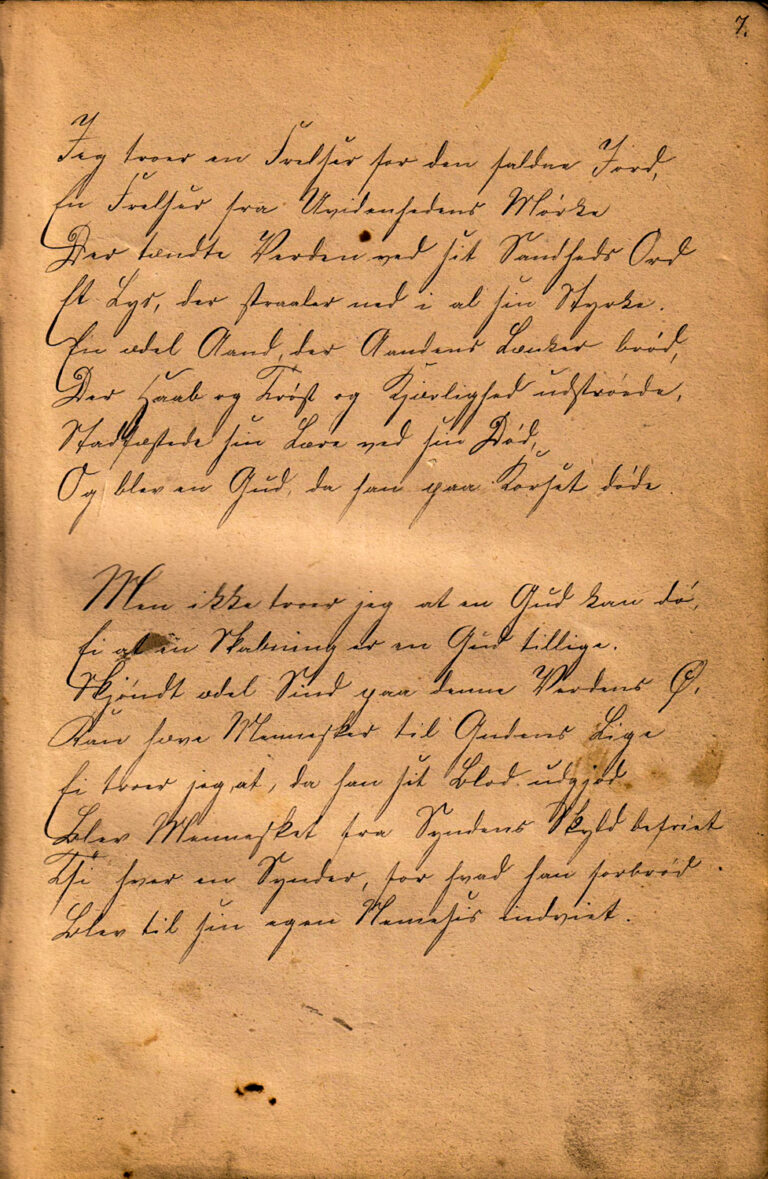 7.
Jeg troer en Frelser for den faldne Jord,
En Frelser fra Uvidenhedens Mörke
Der tændte Verden ved sit Sandheds Ord
Et Lys, der straaler ned i al sin Styrke.
En ædel Aand, der Aandens Lænker bröd,
Der Haab og Tröst og Kjærlighed udströede,
Stadfæstede sin Lære ved sin Död,
Og blev en Gud, da han paa Korset döde.
Men ikke troer jeg at en Gud kan dö,
Ei at en Skabning er en Gud tillige.
Skjöndt ædel Sind paa denne Verdens Ö,
Kan hæve Mennesker til Guddens Lige
Ei troer jeg, at, da han sit Blod udgjöd
Blev Mennesket fra Syndens Skyld befriet
Thi hver en Synder, for hvad han forbröd
Blev til sin egen Nemesis indviet.